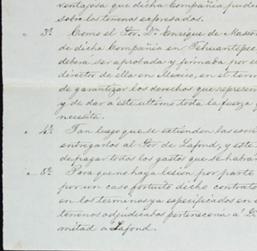 ventajosa que dicha Compañia pudie
sobre los terrenos expresados.
3ª Como el Sr. Dn Enrique de Masson
de dicha Compañia en Tehuantepec
debera ser aprobada y firmada por el
director de ella en Mexico, en el term
de garantizar los derechos que represen
y de dar a este ultimo toda la fuerza y
necesita.
4ª Tan luego que se estienden las
entregarlos al Sor de Lafond, y este
de pagar todos los gastos que se habran
5ª Para que no haya lesion por parte
por un caso fortuito dicho contrato
en los terminos ya especificados en
terrenos adjudicados pertenecen a
mitad a Lafond.